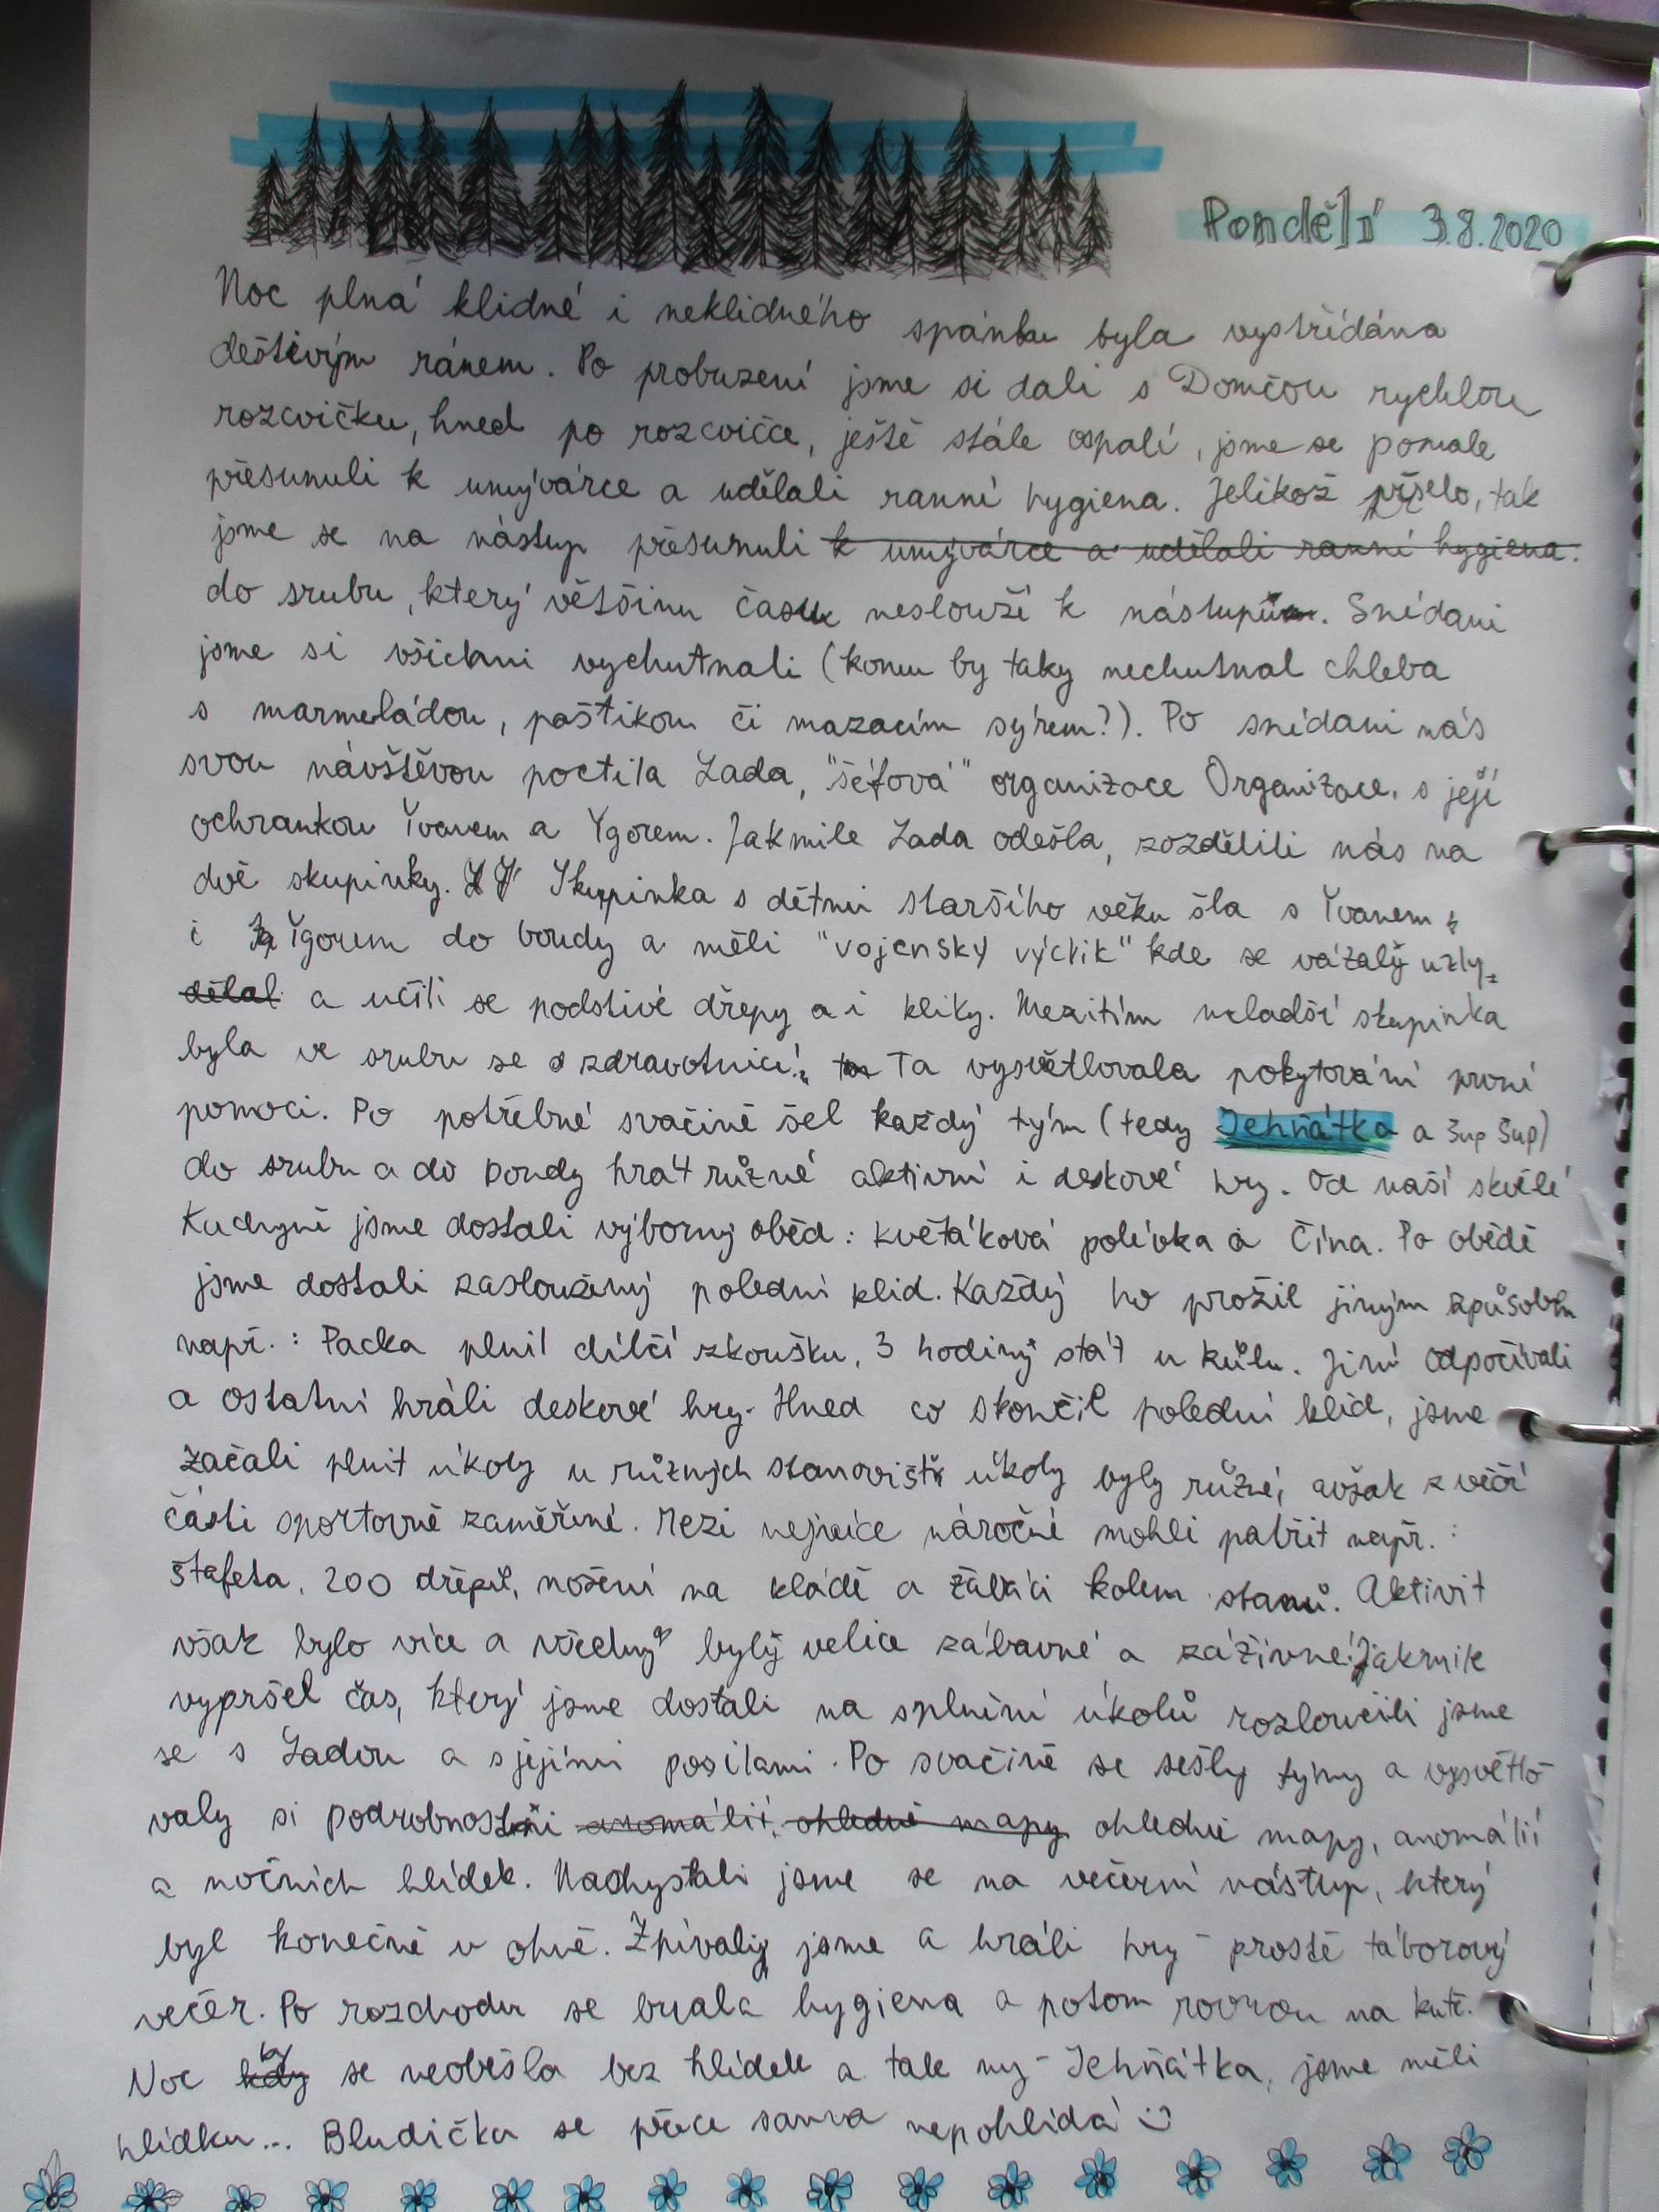 Pondělí 3.8.2020
Noc plná klidné i neklidného spánku byla vystřídána
deštivým ránem. Po probuzení jsme si dali s Domčou rychlou
rozcvičku, hned po rozcvičce, ještě stále ospalí, jsme se pomale
přesunuli k umývárce a udělali ranní hygiena. Jelikož pršelo, tak
jsme se na nástup přesunuli k umývárce a udělali ranní hygiena.
do srubu, který většinu času neslouží k nástupům. Snídani
jsme si všichni vychutnali (komu by taky nechutnal chleba
s marmeládou, paštikou či mazacím sýrem?). Po snídani nás
svou návštěvou poctila Lada, "šéfová" organizace Organizace, s její
ochrankou Yvanem a Ygorem. Jakmile Lada odešla, rozdělili nás na
dvě skupinky. Skupinka s dětmi staršího věku šla s Yvanem
i Ygorem do boudy a měli "vojenský výcvik" kde se vázalý uzly,
dělal a učili se podstivé dřepy a i kliky. Mezitím mladší skupinka
byla ve srubu se zdravotnicí. Ta vysvětlovala pokytování první
pomoci. Po potřebné svačině šel každý tým (tedy Jehňátka a Šup Šup)
do srubu a do boudy hrát různé aktivní i deskové hry. Od naší skvělé
kuchyně jsme dostali výborný oběd: květáková polévka a Čína. Po obědě
jsme dostali zasloužený polední klid. Každý ho prožil jiným způsobem
např.: Packa plnil dílčí zkoušku, 3 hodiny stát u kůlu. Jiní odpočívali
a ostatní hráli deskové hry. Hned co skončil polední klid, jsme
začali plnit úkoly u různých stanovišť úkoly byly různé, avšak z věčí
části sportovně zaměřené. Mezi nejvíce náročné mohli patřit např.:
Štafeta, 200 dřepů, nošení na kládě a žabáci kolem stanů. Aktivit
však bylo více a všechny bylý velice zábavné a záživné. Jakmile
vypršel čas, který jsme dostali na splnění úkolů rozloučili jsme
se s Ladou a s jejími posilami. Po svačině se sešly týmy a vysvětlo
valy si podrobnosti anomálií, ohledně mapy ohledně mapy, anomálií
a nočních hlídek. Nachystali jsme se na večerní nástup, který
byl konečně u ohně. Zpívaly jsme a hráli hry - prostě táborový
večer. Po rozchodu se brala hygiena a potom rovnou na kutě.
Noc by se neobešla bez hlídek a tak my - Jehňátka, jsme měli
hlídku... Bludička se přece sama nepohlídá :)